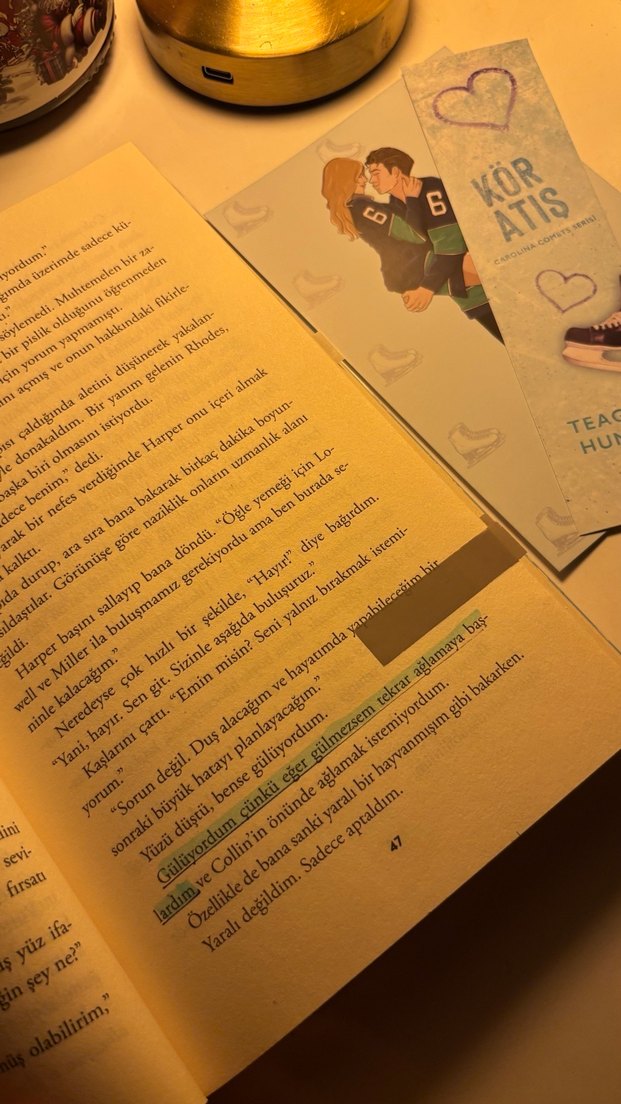 KÖR
ATIŞ
CAROLINA COMETS SERİSİ
TEAG
HUN
6
6
yordum."
ğımda üzerimde sadece kü-
söylemedi. Muhtemelen bir za-
bir pislik olduğunu öğrenmeden
için yorum yapmamıştı.
açmış ve onun hakkındaki fikirle-
çaldığında aletini düşünerek yakalan-
donakaldım. Bir yanım gelenin Rhodes,
başka biri olmasını istiyordu.
benim," dedi.
bir nefes verdiğimde Harper onu içeri almak
kalktı.
durup, ara sıra bana bakarak birkaç dakika boyun-
Görünüşe göre naziklik onların uzmanlık alanı
Harper başını sallayıp bana döndü. "Öğle yemeği için Lo-
well ve Miller ila buluşmamız gerekiyordu ama ben burada se-
ninle kalacağım."
Neredeyse çok hızlı bir şekilde, "Hayır!" diye bağırdım.
"Yani, hayır. Sen git. Sizinle aşağıda buluşuruz."
Kaşlarını çattı. "Emin misin? Seni yalnız bırakmak istemi-
yorum."
"Sorun değil. Duş alacağım ve hayatımda yapabileceğim bir
sonraki büyük hatayı planlayacağım."
Yüzü düştü, bense gülüyordum.
Gülüyordum çünkü eğer gülmezsem tekrar ağlamaya baş-
lardım ve Collin'in önünde ağlamak istemiyordum.
Özellikle de bana sanki yaralı bir hayvanmışım gibi bakarken.
Yaralı değildim. Sadece aptaldım.
47
sevi-
fırsatı
yüz ifa-
şey ne?"
olabilirim,"